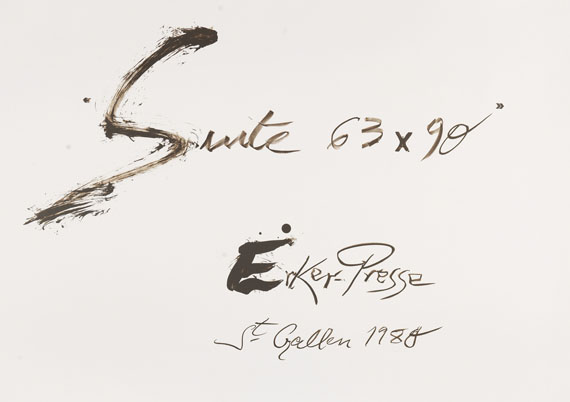 "Suite 63 x 90"
Erker-Presse
St Gallen 1980